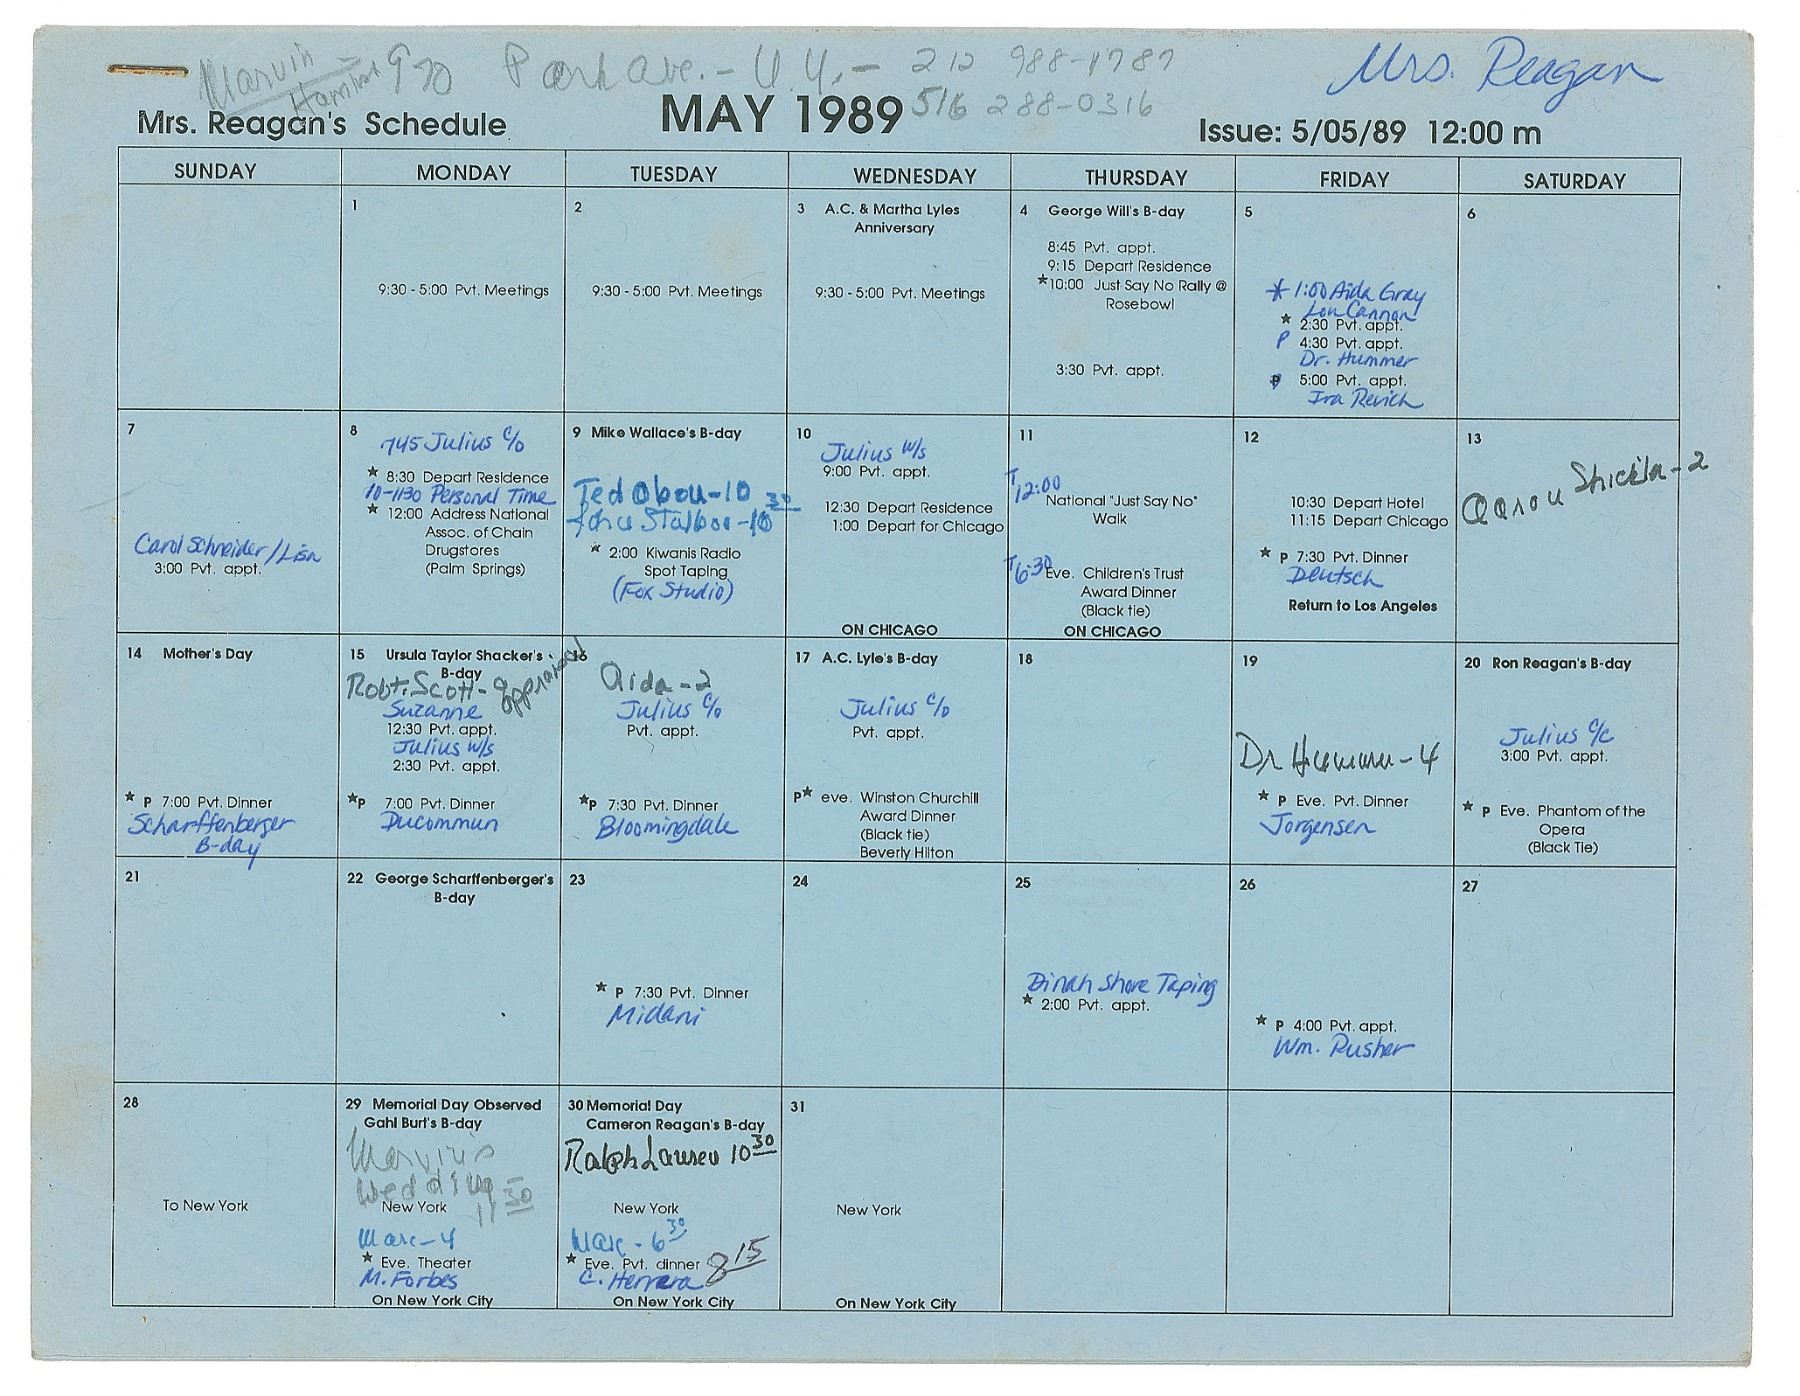 Marvin - 970 Park Ave. - N.Y. - 212 988-1787
516 288-0316
Mrs. Reagan
Mrs. Reagan's Schedule
MAY 1989
Issue: 5/05/89 12:00 m
SUNDAY MONDAY TUESDAY WEDNESDAY THURSDAY FRIDAY SATURDAY
1
9:30 - 5:00 Pvt. Meetings
2
9:30 - 5:00 Pvt. Meetings
3 A.C. & Martha Lyles
Anniversary
9:30 - 5:00 Pvt. Meetings
4 George Will's B-day
8:45 Pvt. appt.
9:15 Depart Residence
★10:00 Just Say No Rally @
Rosebowl
3:30 Pvt. appt.
5
* 1:00 Aida Gray
Lou Cannon
★ 2:30 Pvt. appt.
P 4:30 Pvt. appt.
Dr. Hummer
P 5:00 Pvt. appt.
Ira Revich
6
7
Carol Schneider/Lisa
3:00 Pvt. appt.
8
745 Julius c/o
★ 8:30 Depart Residence
10-1130 Personal Time
★ 12:00 Address National
Assoc. of Chain
Drugstores
(Palm Springs)
9 Mike Wallace's B-day
Ted -10
-10 30
★ 2:00 Kiwanis Radio
Spot Taping
(Fox Studio)
10
Julius w/s
9:00 Pvt. appt.
12:30 Depart Residence
1:00 Depart for Chicago
ON CHICAGO
11
T 12:00
National "Just Say No"
Walk
T 6:30
Eve. Children's Trust
Award Dinner
(Black tie)
ON CHICAGO
12
10:30 Depart Hotel
11:15 Depart Chicago
★ P 7:30 Pvt. Dinner
Deutsch
Return to Los Angeles
13
Aaron Shickla - 2
14 Mother's Day
★ P 7:00 Pvt. Dinner
Scharffenberger
B-day
15 Ursula Taylor Shacker's
B-day
Robt. Scott - appraisal
Suzanne
12:30 Pvt. appt.
Julius w/s
2:30 Pvt. appt.
★P 7:00 Pvt. Dinner
Ducommun
16
Aida - 2
Julius c/o
Pvt. appt.
★P 7:30 Pvt. Dinner
Bloomingdale
17 A.C. Lyle's B-day
Julius c/o
Pvt. appt.
P★ eve. Winston Churchill
Award Dinner
(Black tie)
Beverly Hilton
18
19
Dr Hummer - 4
★ P Eve. Pvt. Dinner
Jorgensen
20 Ron Reagan's B-day
Julius c/c
3:00 Pvt. appt.
★ P Eve. Phantom of the
Opera
(Black Tie)
21
22 George Scharffenberger's
B-day
23
★ P 7:30 Pvt. Dinner
Midani
24
25
Dinah Shore Taping
★ 2:00 Pvt. appt.
26
★ P 4:00 Pvt. appt.
Wm. Pusher
27
28
To New York
29 Memorial Day Observed
Gahl Burt's B-day
Marvin's
Wedding
11 30
New York
Marc - 4
★ Eve. Theater
M. Forbes
On New York City
30 Memorial Day
Cameron Reagan's B-day
Ralph Lauren 10 30
New York
Marc - 6 30
★ Eve. Pvt. dinner 8 15
C. Herrera
On New York City
31
New York
On New York City